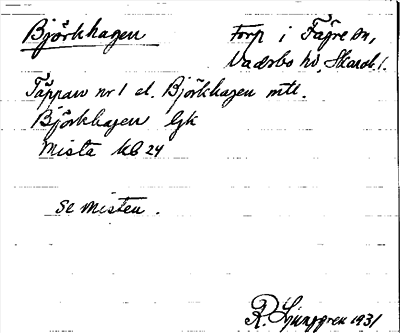 Björkhagen
Torp i Fägre sn,
Vadsbo hd, Skarab. l.
Täppan nr 1 el. Björkhagen mtl.
Björkhagen Gk
Mista kb 24
se Misten.
R. Ljunggren 1931